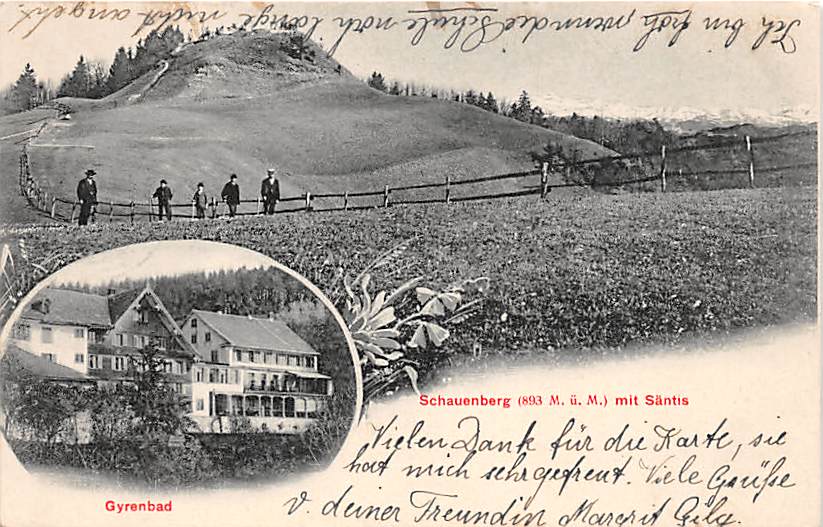 Ich bin froh, wenn die Schule noch lange nicht angeht.
Schauenberg (893 M. ü. M.) mit Säntis
Gyrenbad
Vielen Dank für die Karte, sie
hat mich sehr gefreut. Viele Grüße
v. deiner Freundin Margrit